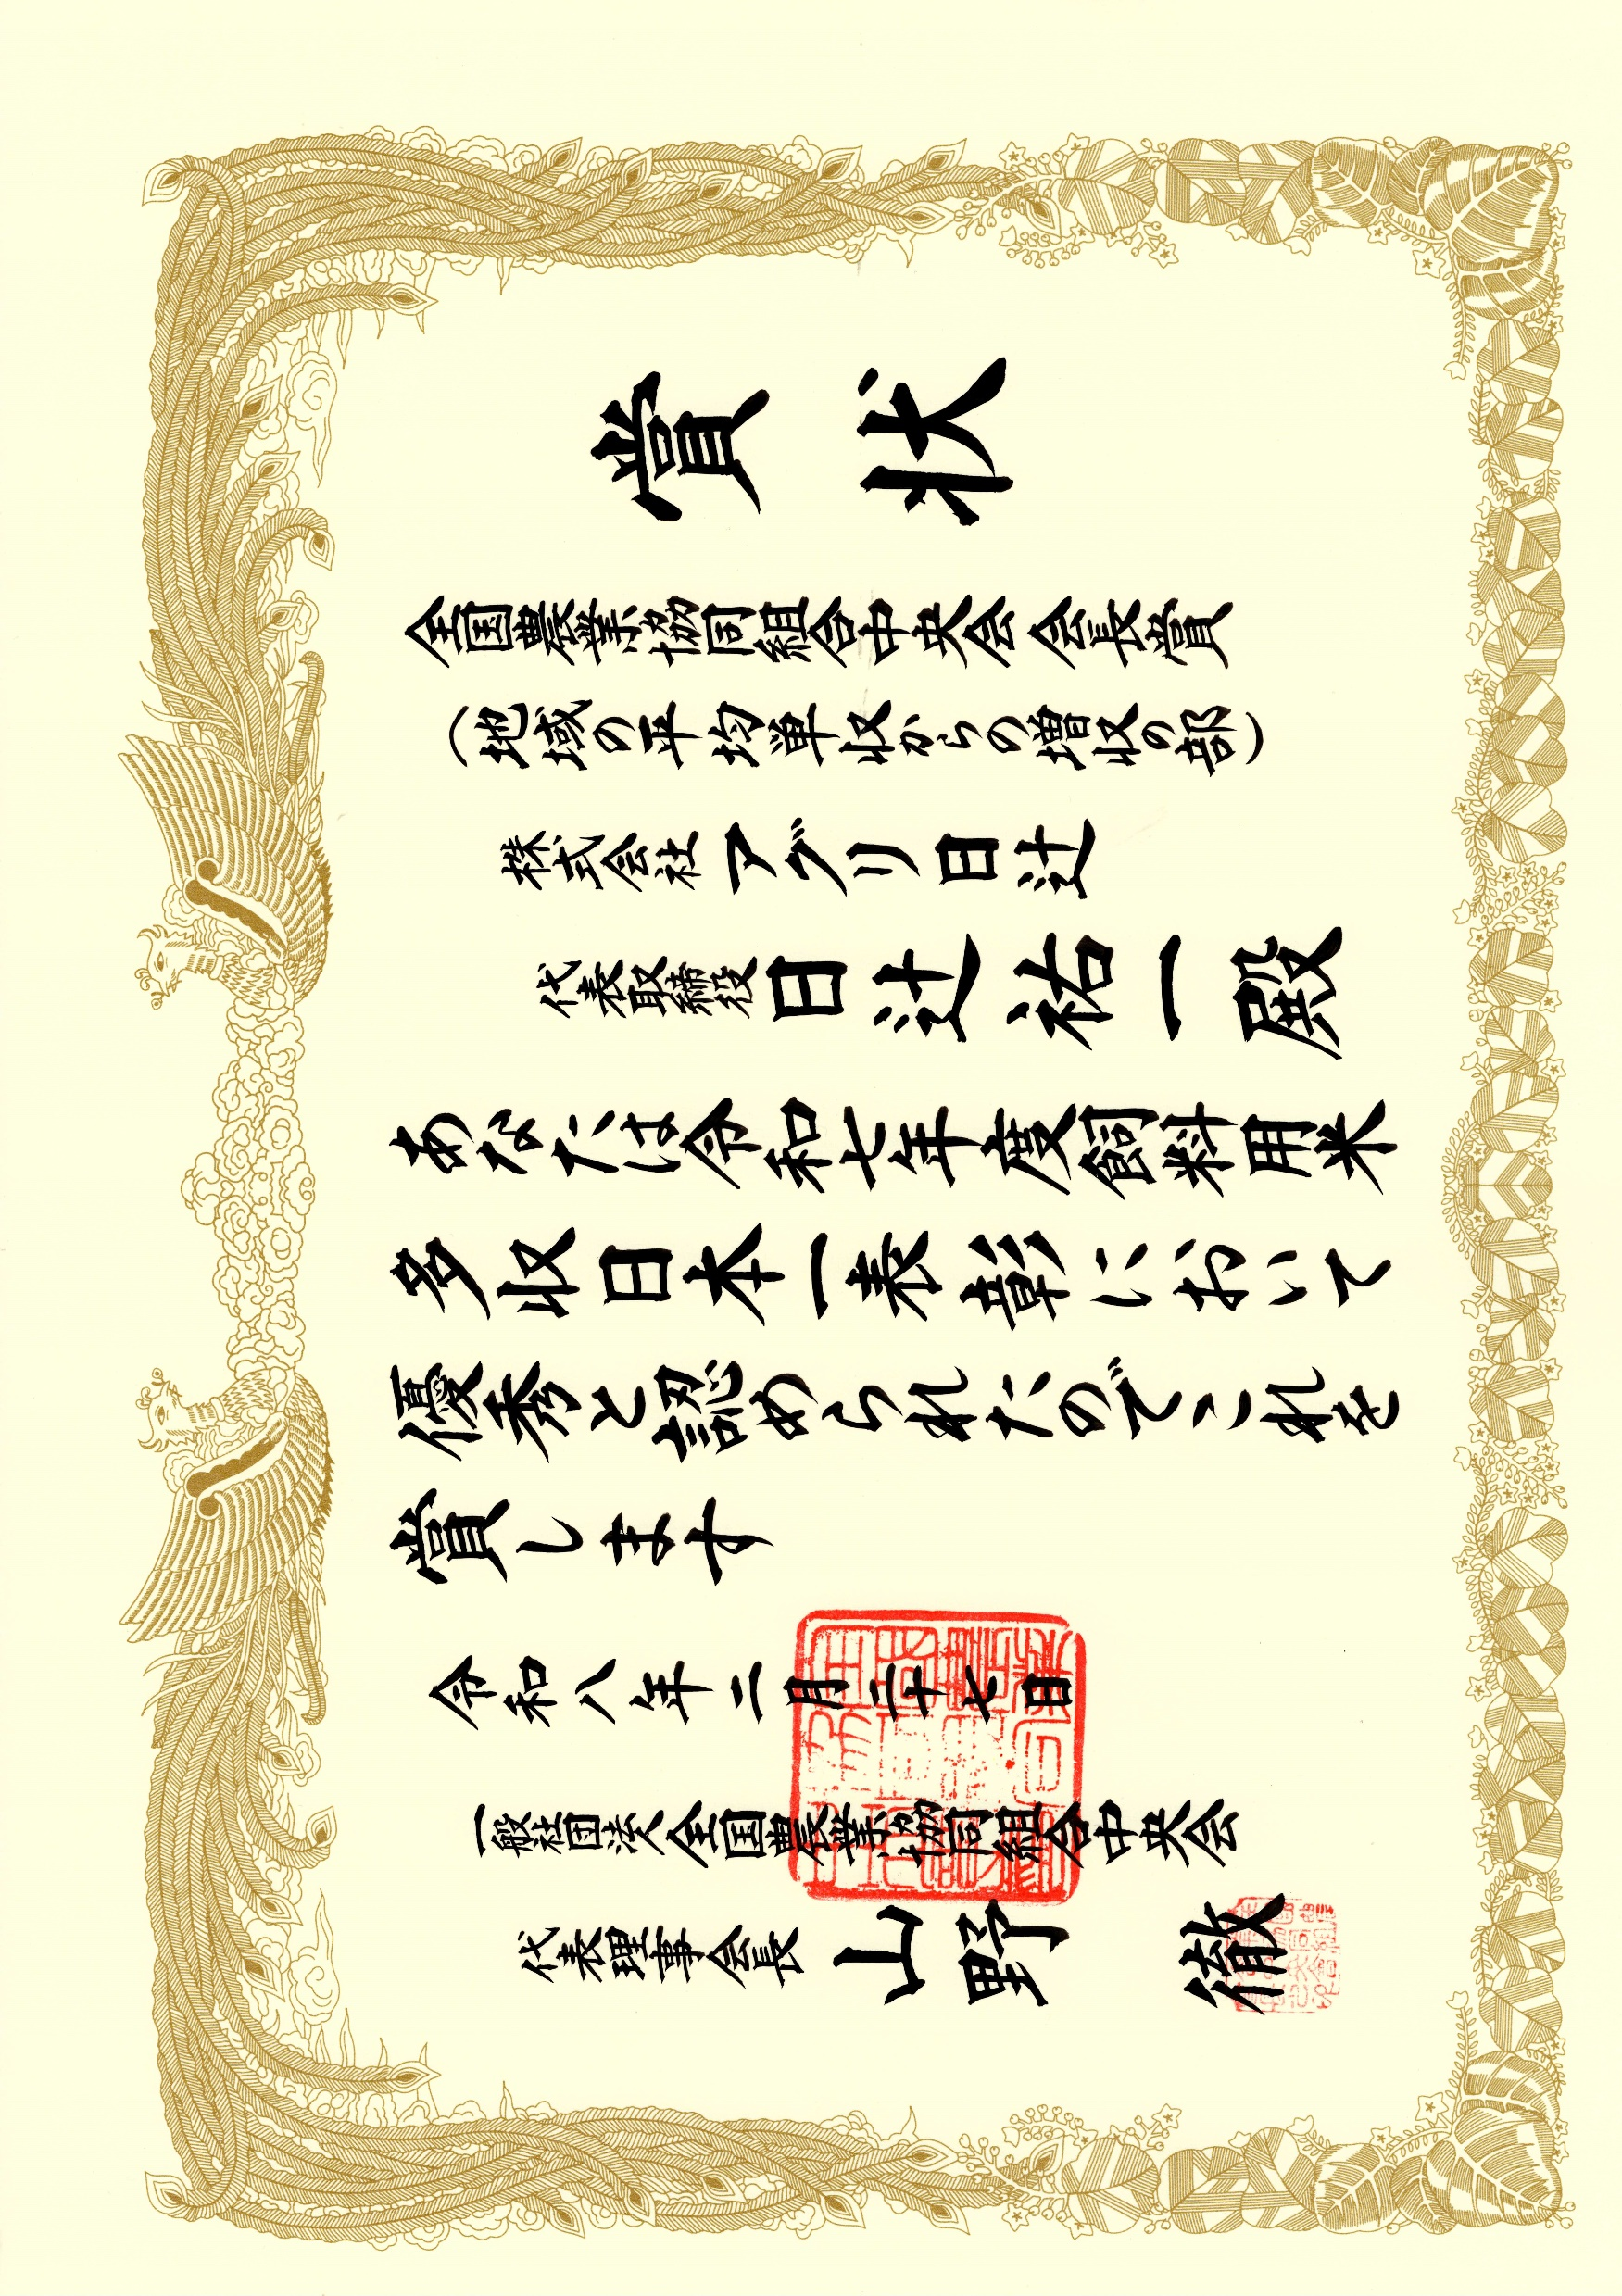 賞状
全国農業協同組合中央会会長賞
（地域の平均単収からの増収の部）
株式会社アグリ日辻
代表取締役日辻祐一殿
あなたは令和七年度飼料用米
多収日本一表彰において
優秀と認められたのでこれを
賞します
令和八年二月二十七日
一般社団法人全国農業協同組合中央会
代表理事会長山野徹